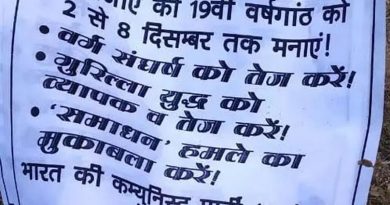 की 19वीं वर्षगांठ को
2 से 8 दिसम्बर तक मनाएं!
• वर्ग संघर्ष को तेज करें!
• गुरिल्ला युद्ध को
व्यापक व तेज करें!
• 'समाधन' हमले का
मुकाबला करें!
भारत की कम्युनिस्ट पार्टी